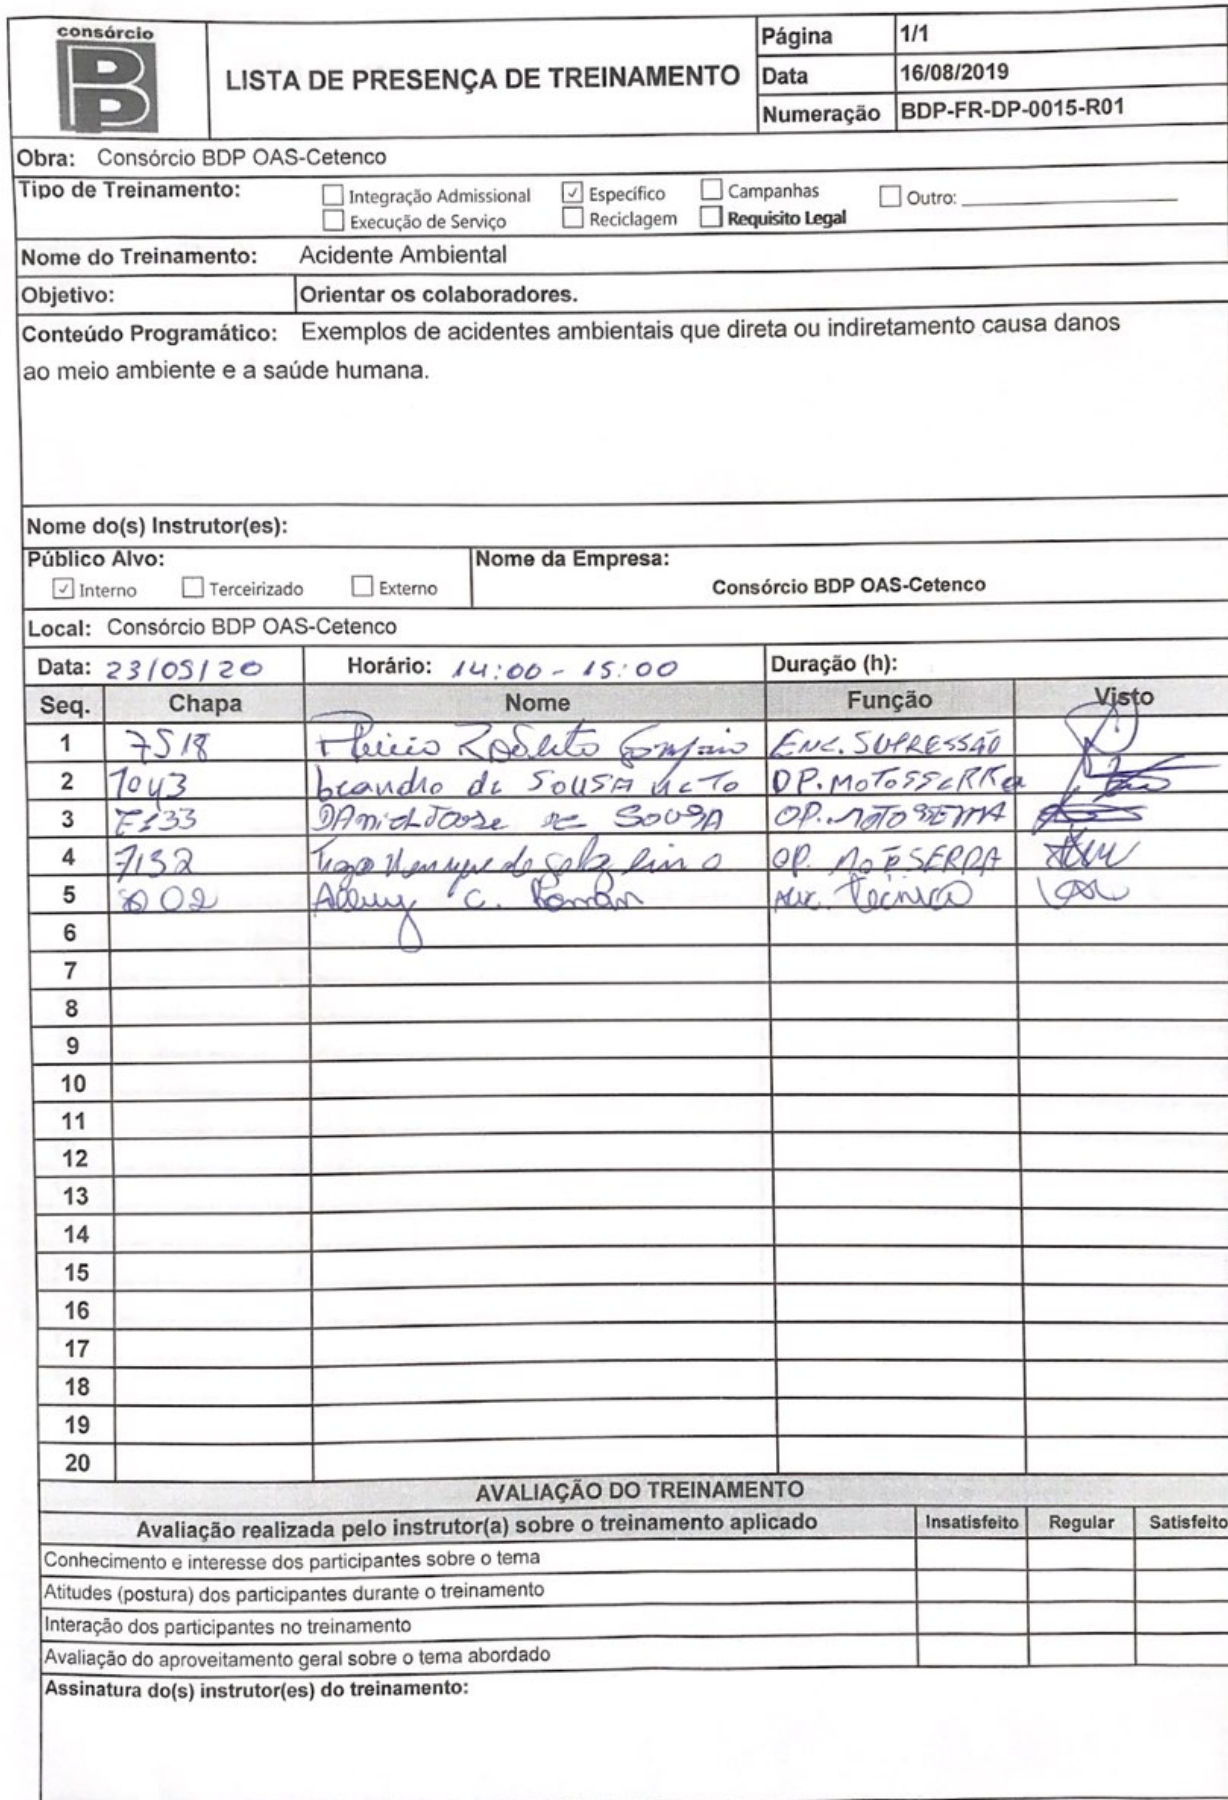 consórcio
LISTA DE PRESENÇA DE TREINAMENTO
Página 1/1
Data 16/08/2019
Numeração BDP-FR-DP-0015-R01
Obra: Consórcio BDP OAS-Cetenco
Tipo de Treinamento:
Integração Admissional Específico Campanhas Outro:
Execução de Serviço Reciclagem Requisito Legal
Nome do Treinamento: Acidente Ambiental
Objetivo: Orientar os colaboradores.
Conteúdo Programático: Exemplos de acidentes ambientais que direta ou indiretamento causa danos
ao meio ambiente e a saúde humana.
Nome do(s) Instrutor(es):
Público Alvo: Nome da Empresa:
Interno Terceirizado Externo Consórcio BDP OAS-Cetenco
Local: Consórcio BDP OAS-Cetenco
Data: 23/05/20 Horário: 14:00 - 15:00 Duração (h):
Seq. Chapa Nome Função Visto
1 7518 ENC. SUPRESSÃO
2 7043 Leandro de SOUSA OP. MOTOSSERRA
3 DE SOUSA OP.
4 7132 OP.
5 C. Aux. Técnico
6
7
8
9
10
11
12
13
14
15
16
17
18
19
20
AVALIAÇÃO DO TREINAMENTO
Avaliação realizada pelo instrutor(a) sobre o treinamento aplicado Insatisfeito Regular Satisfeito
Conhecimento e interesse dos participantes sobre o tema
Atitudes (postura) dos participantes durante o treinamento
Interação dos participantes no treinamento
Avaliação do aproveitamento geral sobre o tema abordado
Assinatura do(s) instrutor(es) do treinamento: